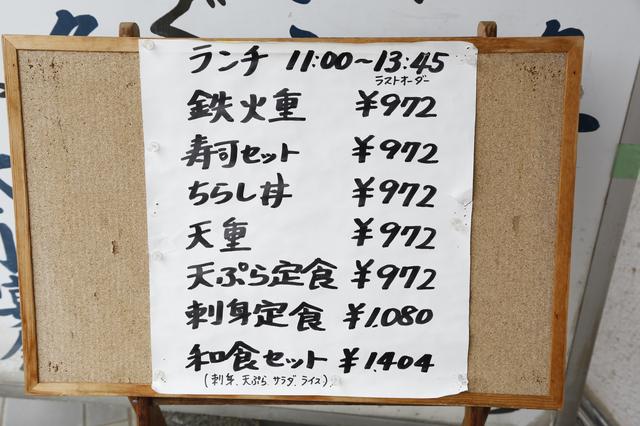 ランチ 11:00～13:45
ラストオーダー
鉄火重 ¥972
寿司セット ¥972
ちらし丼 ¥972
天重 ¥972
天ぷら定食 ¥972
刺身定食 ¥1.080
和食セット ¥1.404
(刺身、天ぷら、サラダ、ライス)